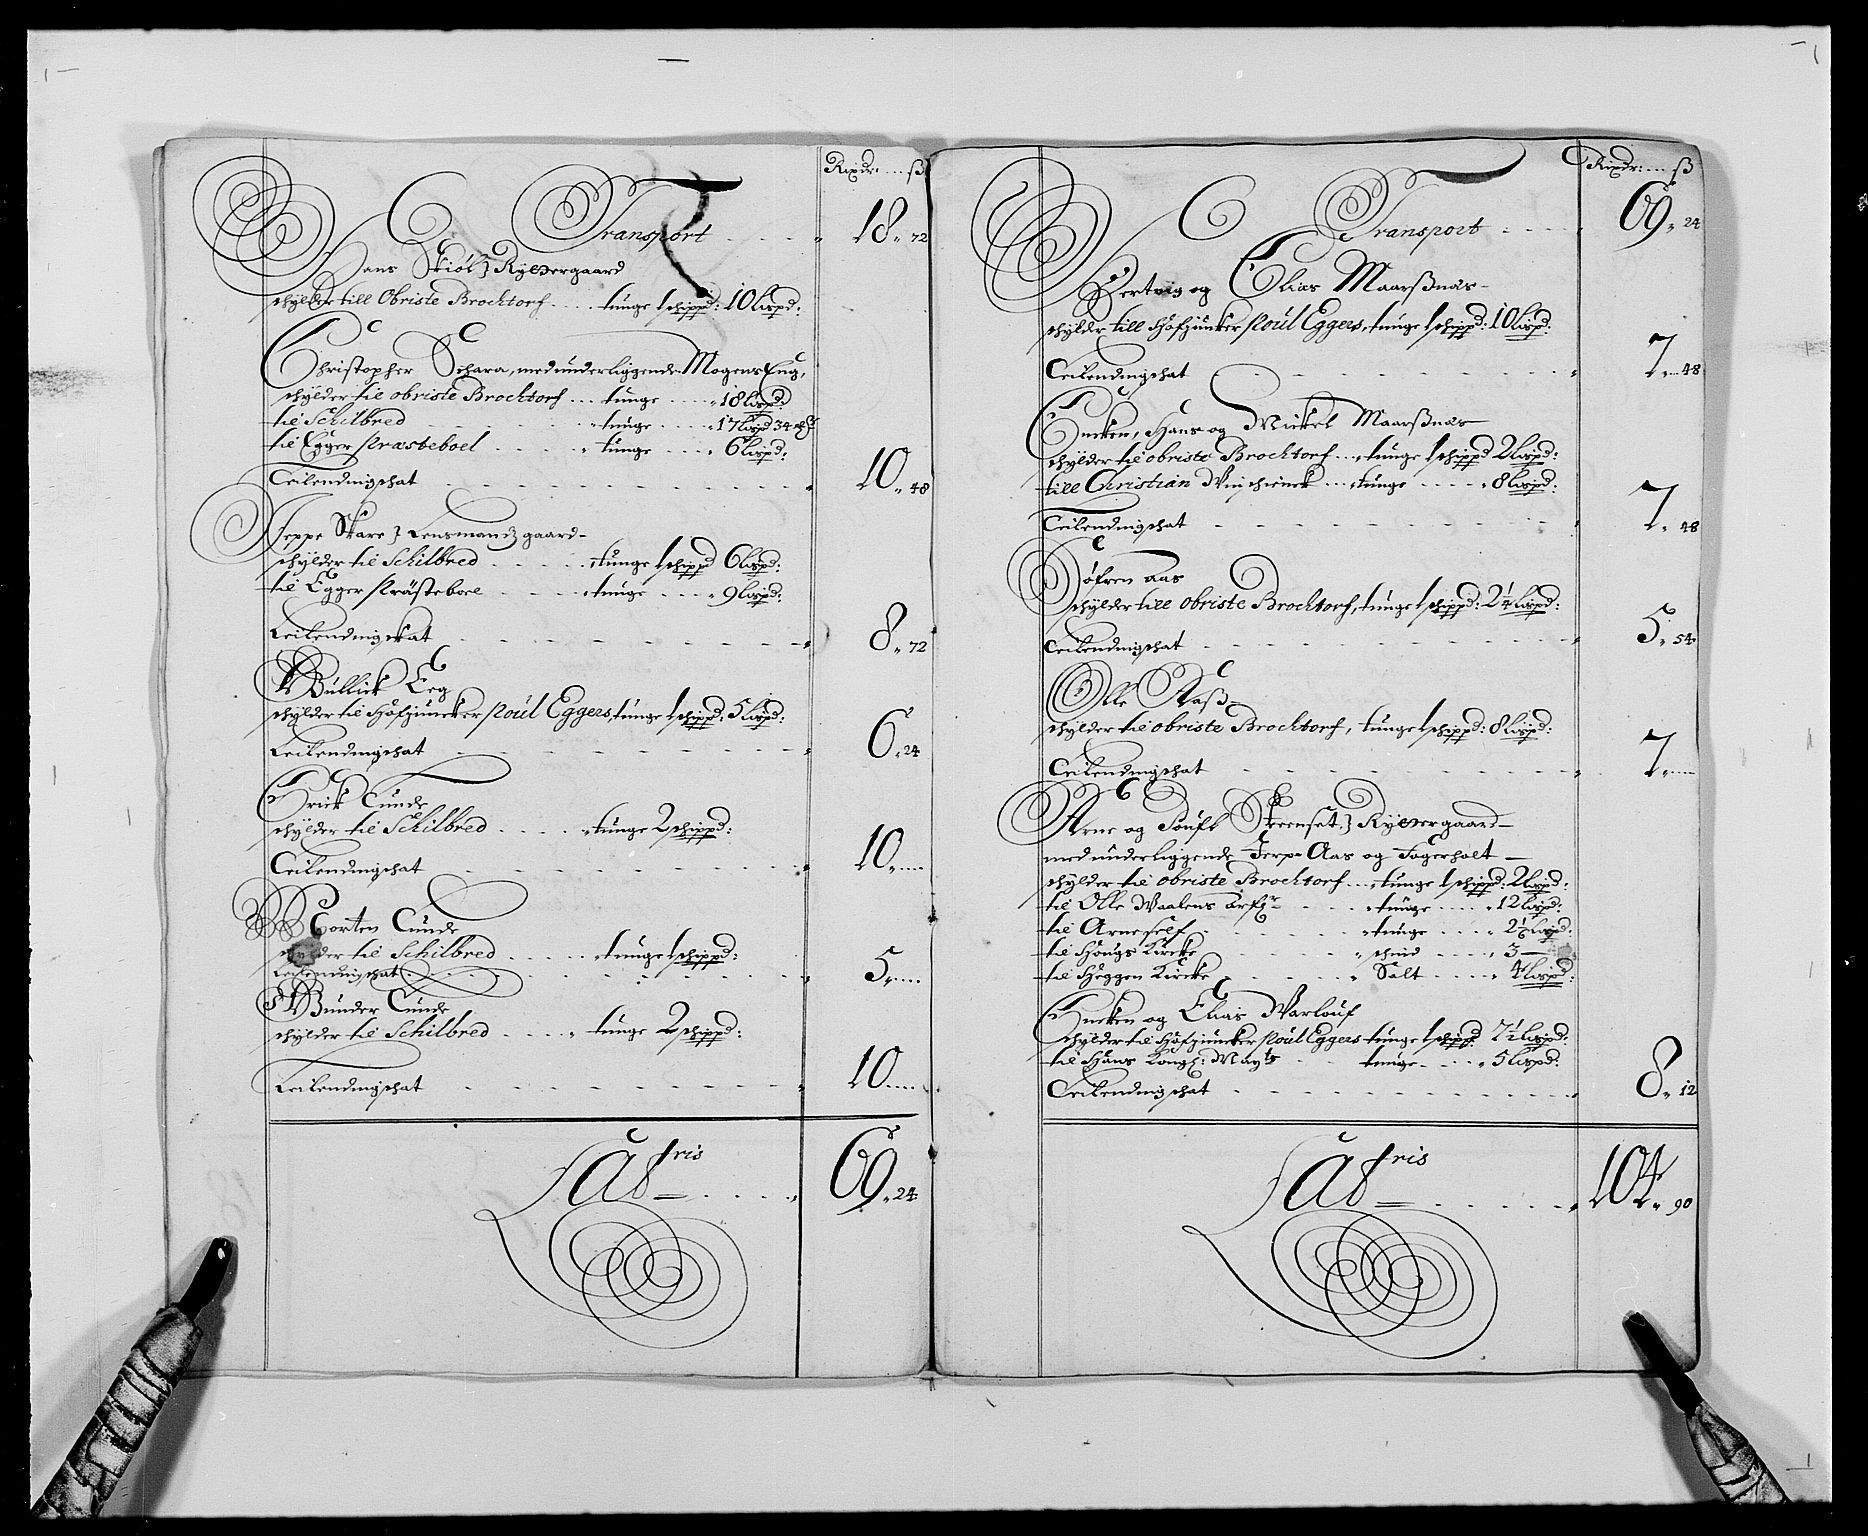 Rixdr: .... ß
Transport . . . . „ 18 „ 72
Hans Skiøl, Ryttergaard
schylder till Obriste Brocktorf .... tunge 1 schippd: 10 lispd:
Christopher Schara, med underliggende Mogens Eng,
schylder til obriste Brocktorf ... tunge .... „ 18 lispd:
til Schilbred . . . . „ tunge .... „ 17 lispd 34
til Egger Præsteboel . . . . „ tunge .... „ 6 lispd:
Leilendingschat . . . . „ 10 „ 48
Jeppe Skare, Lensmandz gaard
schylder til Schilbred . . . . . „ tunge 1 schippd 6 lispd:
til Egger Prästeboel . . . . „ tunge .... „ 9 lispd:
Leilendingskat . . . . „ 8 „ 72
Gullick Eeg
schylder til Hofjuncker Poul Eggers, tunge 1 schippd: 5 lispd:
Leilendingschat . . . . „ 6 „ 24
Erick Lunde
schylder til Schilbred . . . . . „ tunge 2 schippd:
Leilendingschat . . . . „ 10 „ ....
Morten Lunde
schylder til Schilbred . . . . . „ tunge 1 schippd:
Leilendingschat . . . . „ 5 „ ....
Gunder Lunde
schylder til Schilbred . . . . „ tunge 2 schippd:
Leilendingschat . . . . „ 10 „ ....
Latris . . . . „ 69 „ 24
Rixdr: .... ß
Transport . . . . „ 69 „ 24
Hertvig og Elias Maarßnäs
schylder till Hofjuncker Poul Eggers, tunge 1 schippd: 10 lispd:
Leilendingschat . . . . „ 7 „ 48
Encken, Hans og Mickel Maarßnäs
schylder til obriste Brocktorf ... tunge 1 schippd 2 lispd:
till Christian ... tunge .... „ 8 lispd:
Leilendingschat . . . . „ 7 „ 48
Søfren Aas
schylder till Obriste Brocktorf, tunge 1 schippd: 2 1/4 lispd:
Leilendingschat . . . . „ 5 „ 54
Olle Næß
schylder til obriste Brocktorf, tunge 1 schippd: 8 lispd:
Leilendingschat . . . . „ 7 „ ....
Arne og Skeenset, Ryttergaard
med underliggende Jerp Aas og Fogerholt
schylder til obriste Brocktorf ... tunge 1 schippd: 2 lispd:
til Olle Waalens arf . . . . „ tunge .... „ 12 lispd:
til Arne self . . . . „ tunge .... „ 2 1/2 lispd:
til Hougs Kircke „ schind .... „ 3 —
til Heggen Kircke . . . . „ Salt .... „ 4 lispd:
Encken og Elias Warlouf
schylder til Hofjuncker Poul Eggers tunge 1 schippd 7 1/2 lispd:
til Hans Kongl: Mayts tunge .... „ 5 lispd:
Leilendingschat . . . . „ 8 „ 12
Latris . . . . „ 104 „ 90